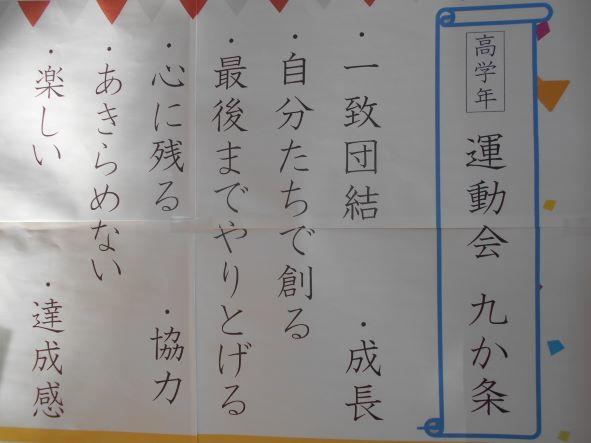 高学年 運動会 九か条
・一致団結 ・成長
・自分たちで創る
・最後までやりとげる
・心に残る ・協力
・あきらめない
・楽しい ・達成感